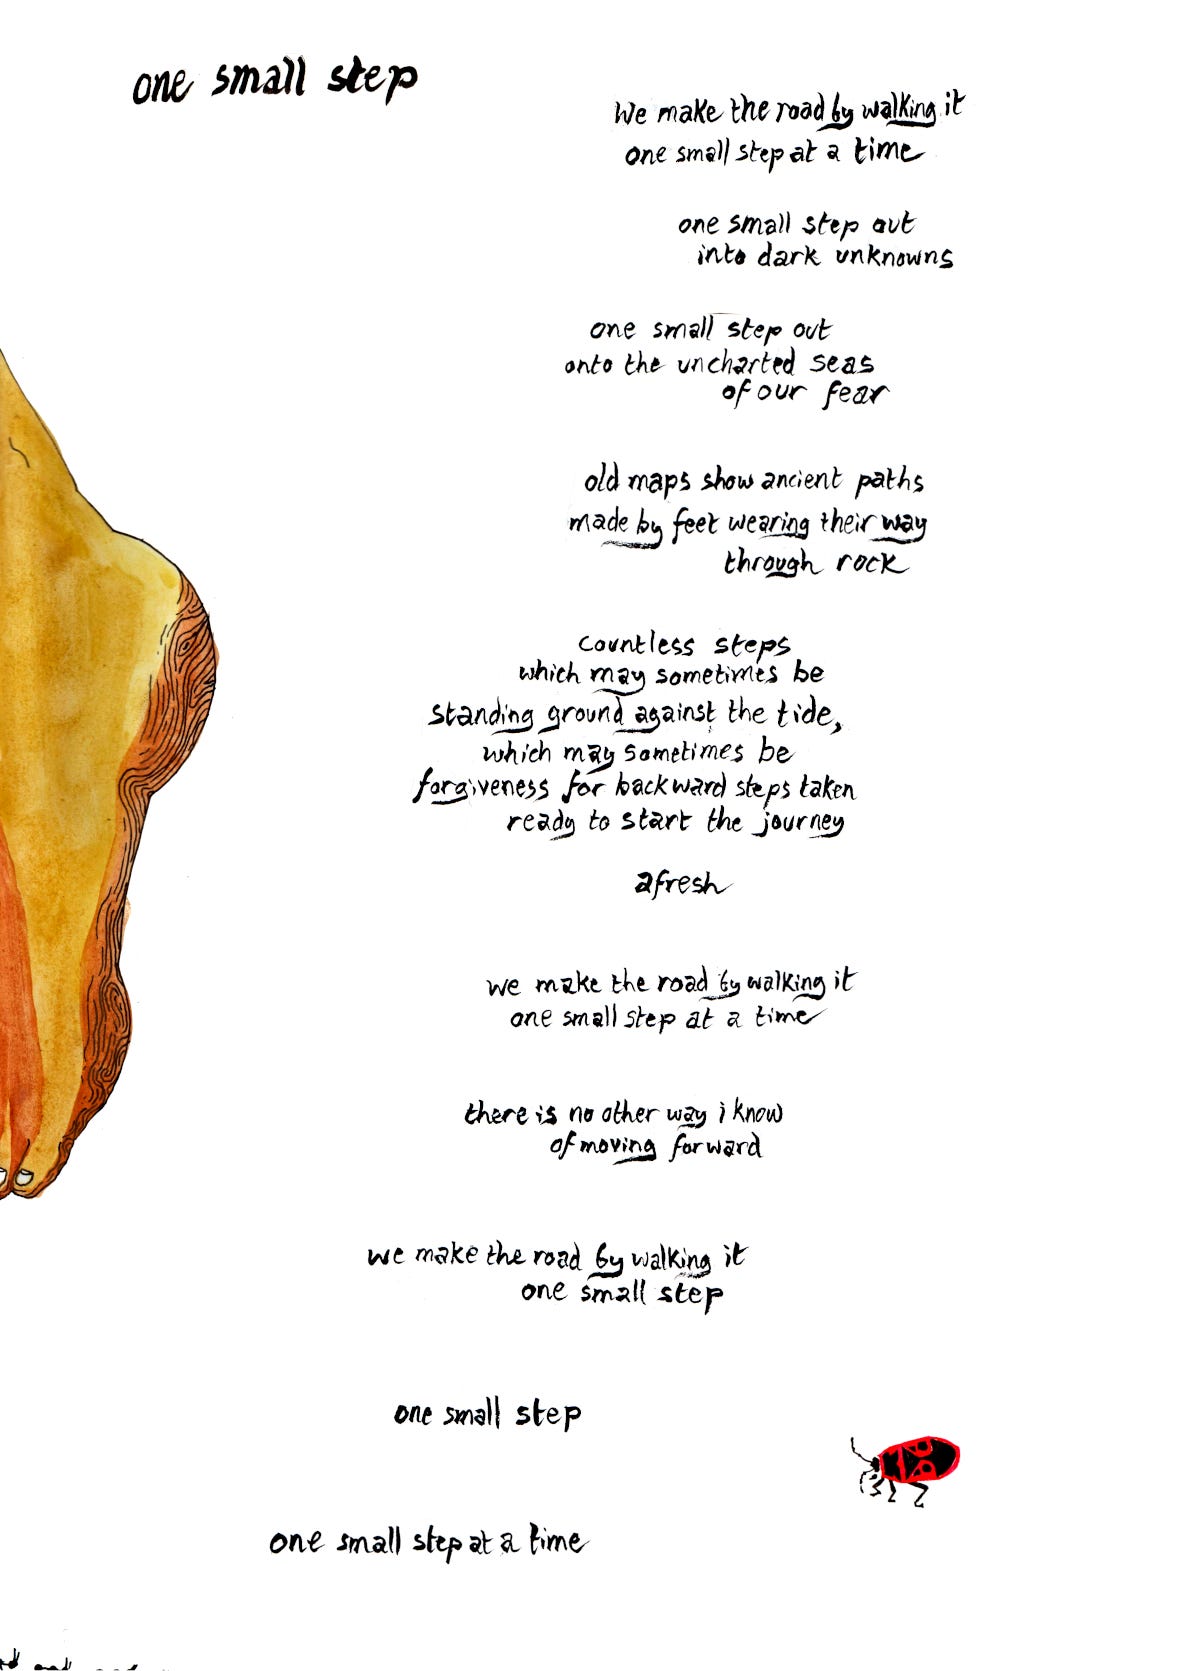 one small step
We make the road by walking it
one small step at a time
one small step out
into dark unknowns
one small step out
onto the uncharted seas
of our fear
old maps show ancient paths
made by feet wearing their way
through rock
countless steps
which may sometimes be
standing ground against the tide,
which may sometimes be
forgiveness for backward steps taken
ready to start the journey
afresh
we make the road by walking it
one small step at a time
there is no other way i know
of moving forward
we make the road by walking it
one small step
one small step
one small step at a time